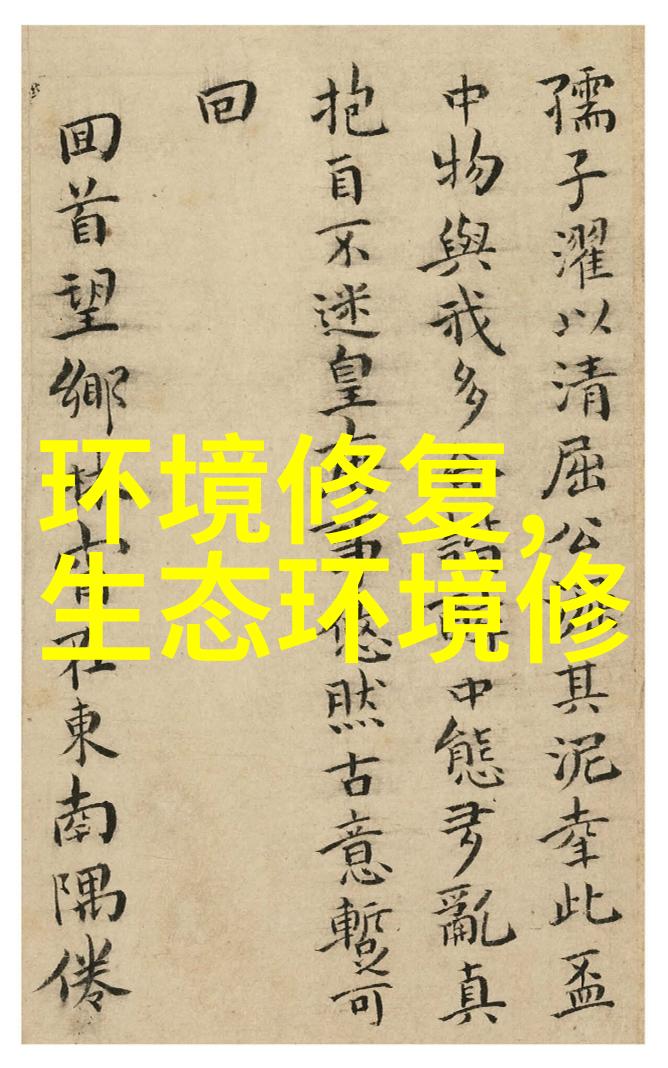 孺子濯以清屈公其泥此盃
中物與我多諧中態多亂真
抱自不迷皇悠然古意暫可
回
回首望鄉在東南隅倦
环境修复,
生态环境修